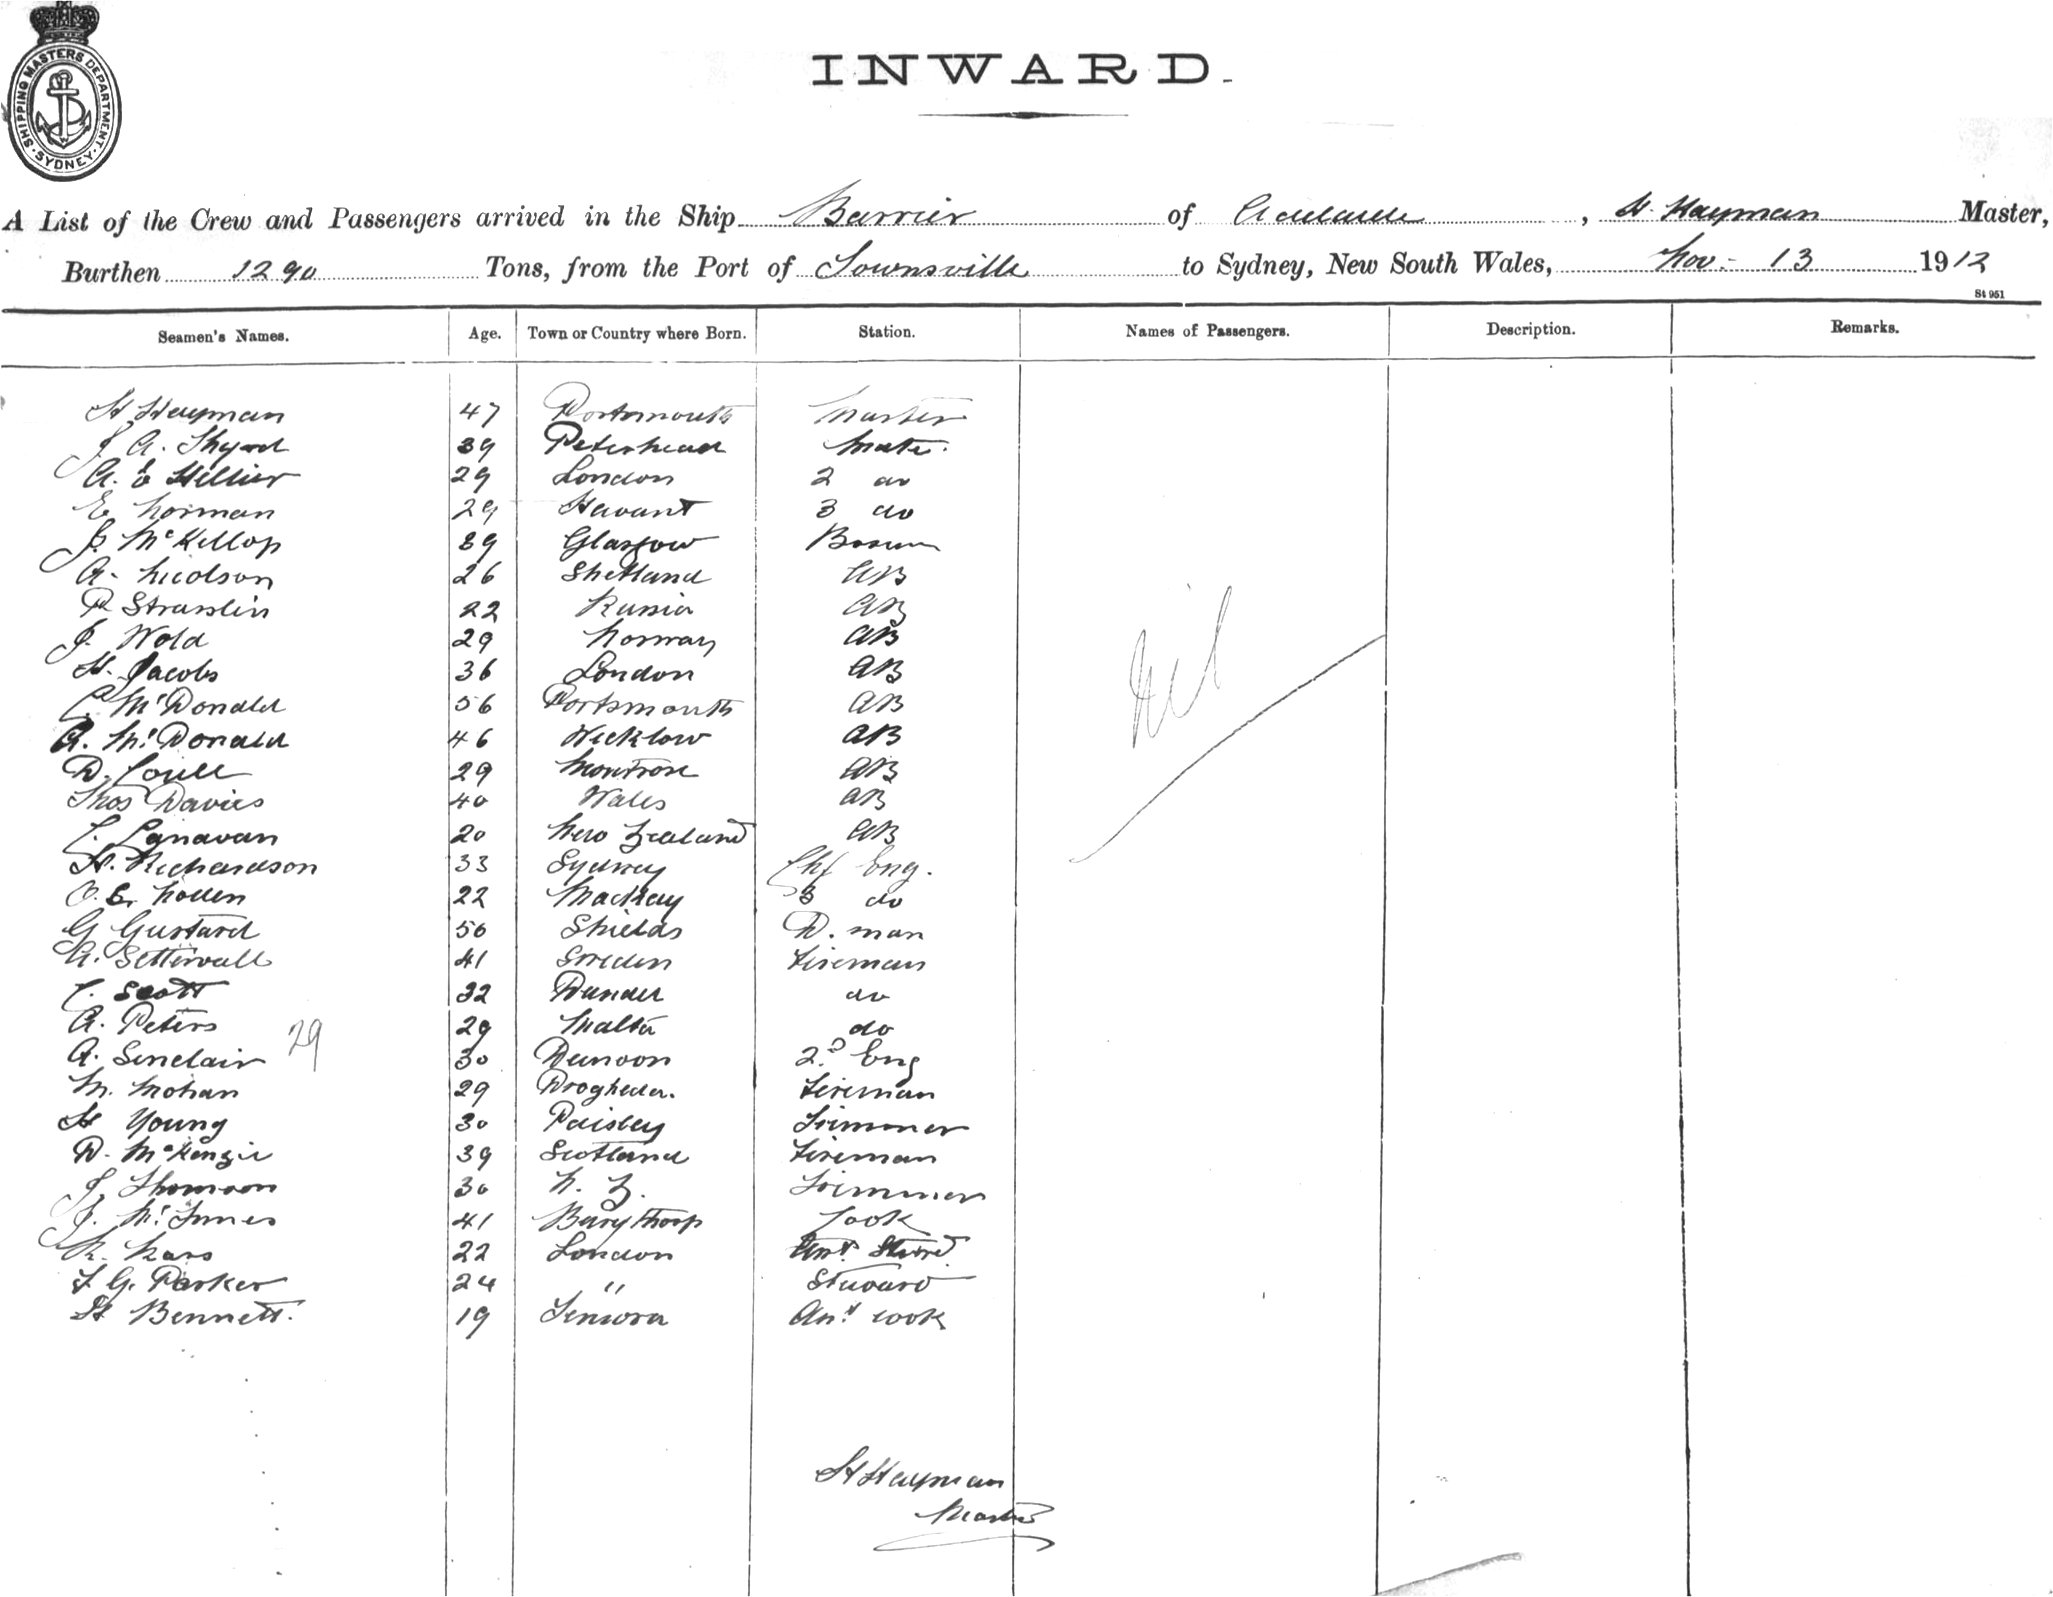 SHIPPING MASTERS DEPARTMENT. SYDNEY.
INWARD.
A List of the Crew and Passengers arrived in the Ship Barrier of Adelaide, H. Hayman Master,
Burthen 1290 Tons, from the Port of Townsville to Sydney, New South Wales, Nov. 13 1912
St 951
Seamen's Names. Age. Town or Country where Born. Station. Names of Passengers. Description. Remarks.
H Hayman 47 Portsmouth Master
J A. 39 Peterhead Mate.
A. E Hillier 29 London 2 do
E Norman 29 Havant 3 do
J. McKillop 39 Glasgow Bosun
A. Nicolson 26 Shetland AB
P 22 Russia AB
J. Wold 29 Norway AB
H. Jacobs 36 London AB
C McDonald 56 Portsmouth AB
A. McDonald 46 Wicklow AB
D. 29 Montrose AB
Thos Davies 40 Wales AB
20 New Zealand AB
H. Richardson 33 Sydney Chf Eng.
22 Mackay 3 do
G Gustard 50 Shields D. man
A. Setterwall 41 Sweden Fireman
C. Scott 32 Dundee do
A. Peters 29 Malta do
29
A. Sinclair 30 Dunoon 2d Eng
M. Mohan 29 Drogheda. Fireman
H Young 30 Paisley Trimmer
D. McKenzie 39 Scotland Fireman
J Thomson 30 N. Z. Trimmer
J. McInnes 41 Cook
22 London Asst Steward
F G. Parker 24 " Steward
H Bennett. 19 Temora Asst cook
Nil
H Hayman
Master